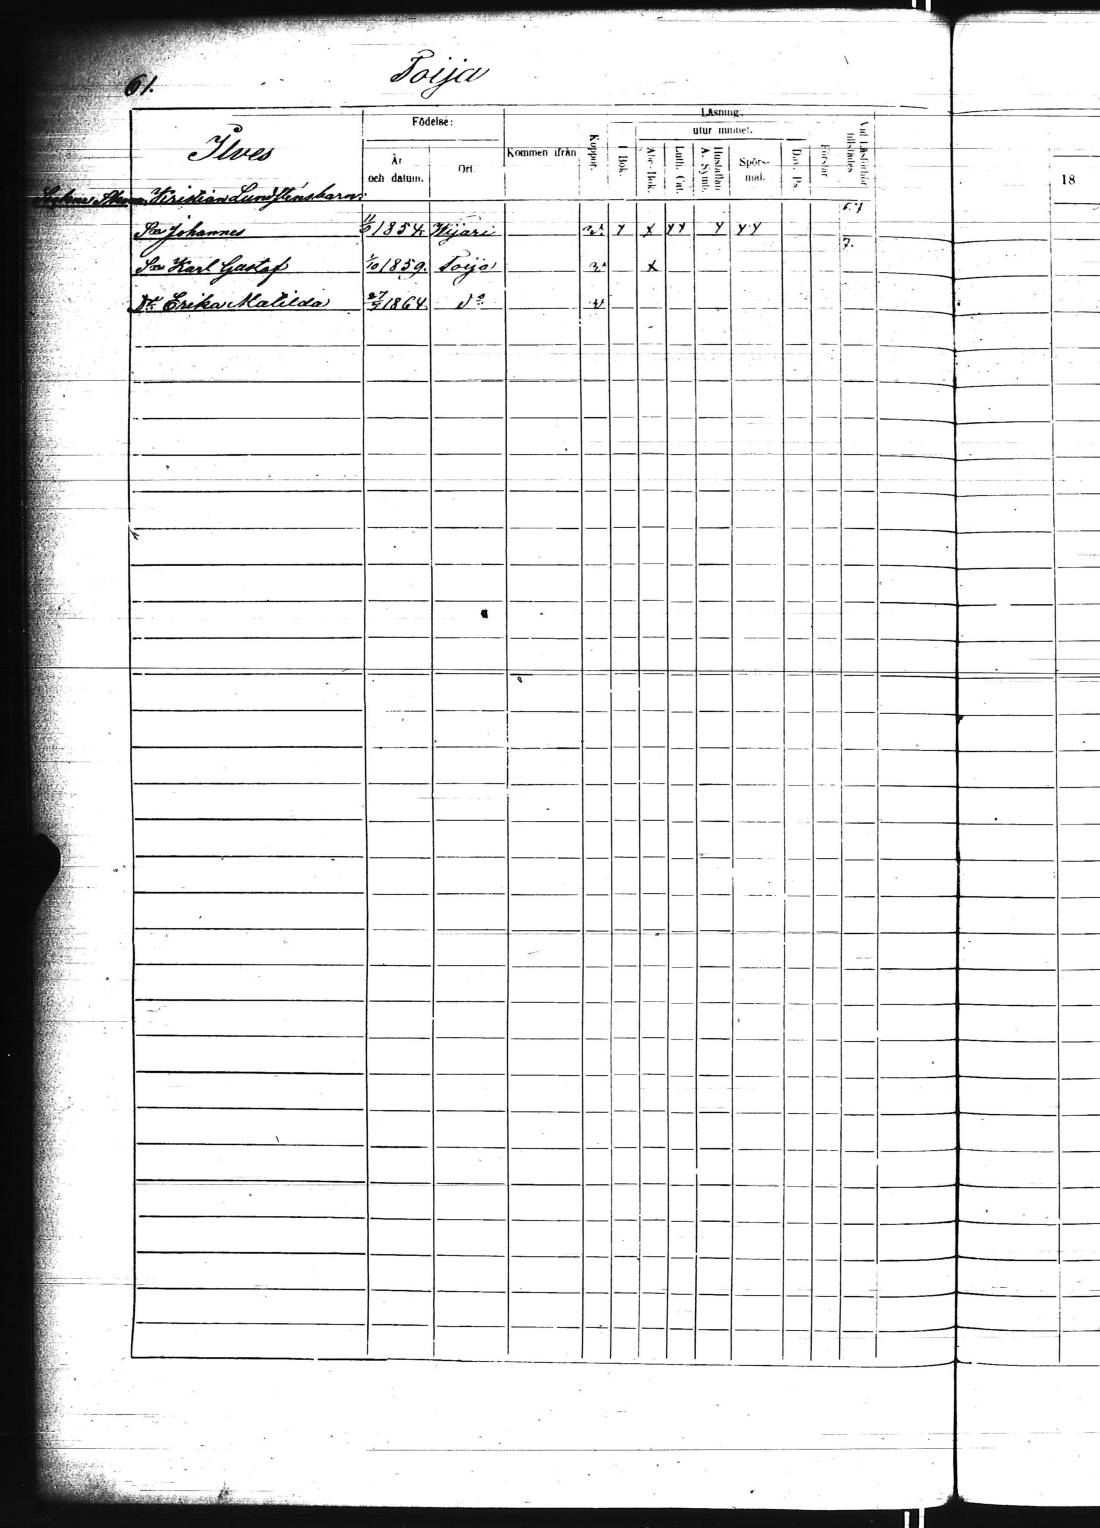 61.
Toija
Ilves
Födelse:
År
och datum.
Ort.
Kommen ifrån
Koppor.
Läsning.
utur minnet.
I Bok.
Abc-Bok.
Luth. Cat.
Hustaflan
A. Symb.
Spörs-
mål.
Dav. Ps.
Förstår
Vid Läsförhör
tillstädes
18
Kristian Lundsténs barn:
5.7
Sn Johannes 1854. Kijari v. y x y y y y y
7.
Sn Karl Gustaf 1/10 1859. Toija v. x
Dr Erika Matilda 27/5 1864. do v